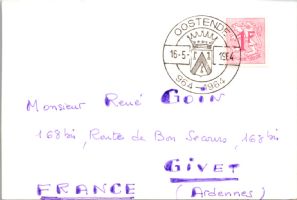 OOSTENDE
16-5-1964
964-1964
1F
Monsieur René GOIN
168 bis, Route de Bon Secours, 168 bis
GIVET
FRANCE (Ardennes)